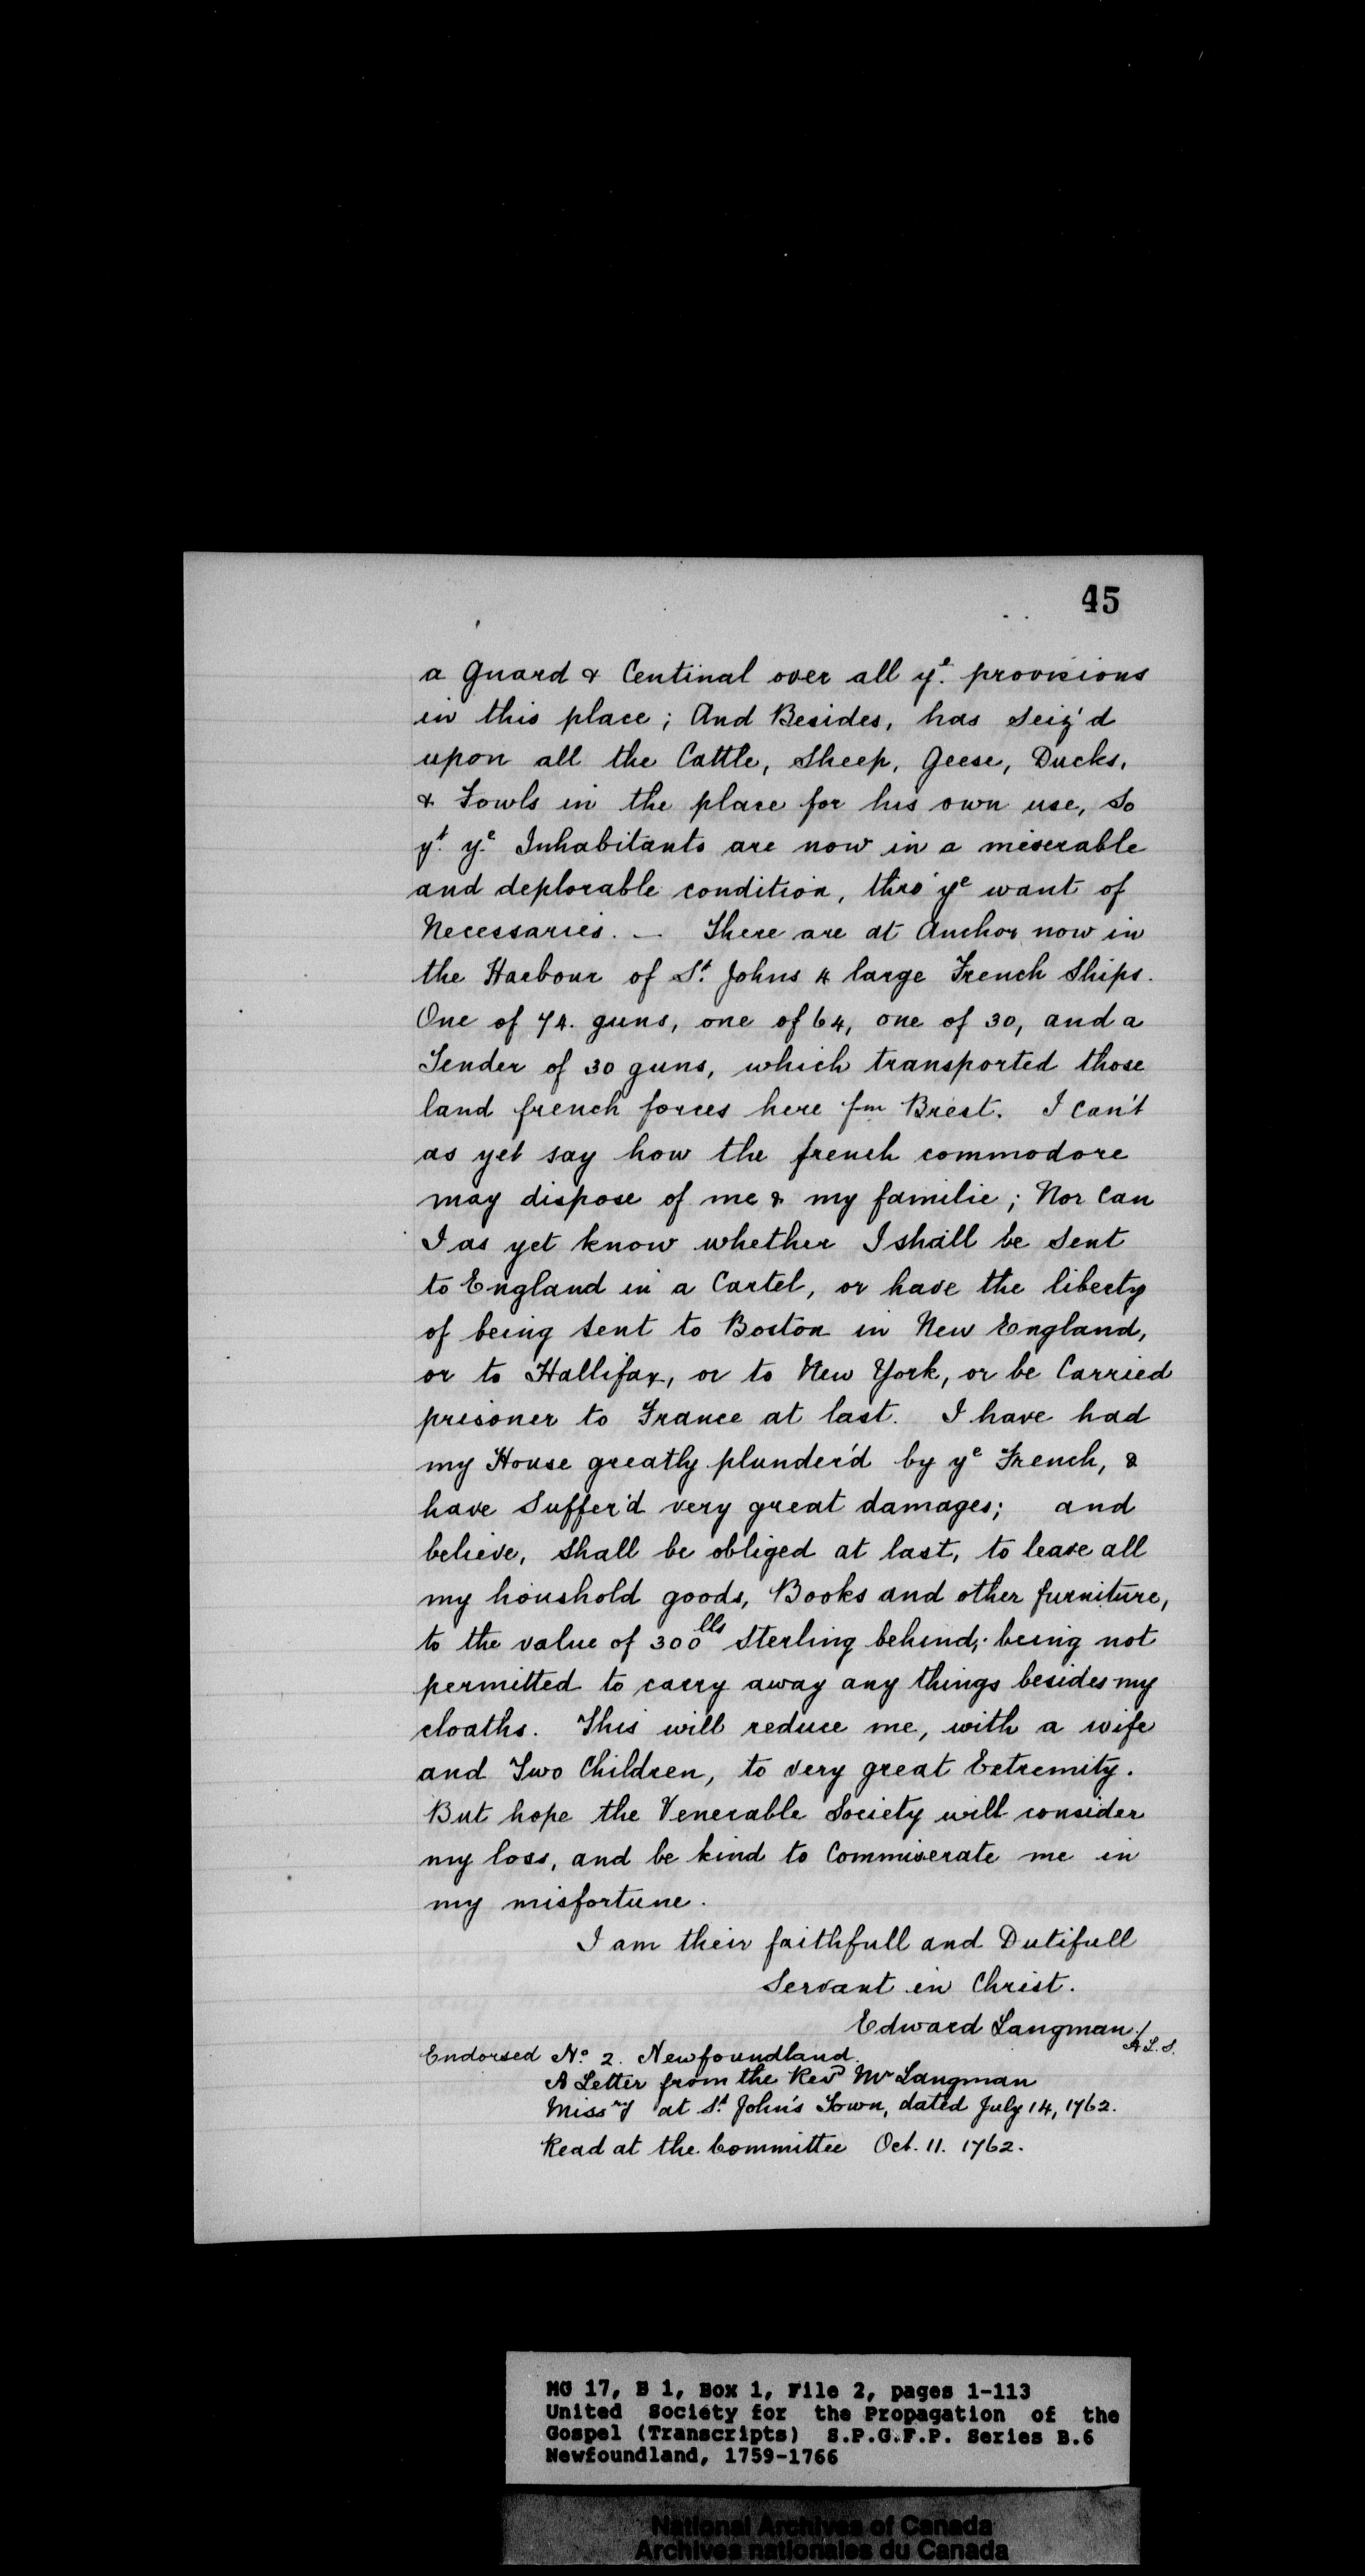 45
a Guard & Centinal over all yᵉ. provisions
in this place; And Besides, has Seiz'd
upon all the Cattle, Sheep, Geese, Ducks,
& Fowls in the place for his own use, So
yᵗ. yᵉ. Inhabitants are now in a miserable
and deplorable condition, thro' yᵉ want of
Necessaries. — There are at Anchor now in
the Harbour of Sᵗ. Johns 4 large French Ships.
One of 74. guns, one of 64, one of 30, and a
Tender of 30 guns, which transported those
land french forces here fm Brest. I Can't
as yet say how the french commodore
may dispose of me & my familie; Nor Can
I as yet know whether I shall be Sent
to England in a Cartel, or have the liberty
of being sent to Boston in New England,
or to Hallifax, or to New York, or be Carried
prisoner to France at last. I have had
my House greatly plunder'd by yᵉ French, &
have Suffer'd very great damages; and
believe, shall be obliged at last, to leave all
my houshold goods, Books and other furniture,
to the value of 300ˡˡˢ Sterling behind; being not
permitted to carry away any things besides my
cloaths. This will reduce me, with a wife
and Two Children, to very great Extremity.
But hope the Venerable Society will consider
my loss, and be kind to Commiserate me in
my misfortune.
I am their faithfull and Dutifull
Servant in Christ.
Edward Langman/
A.L.S.
Endorsed Nº 2. Newfoundland.
A Letter from the Revᵈ Mʳ Langman
Missʳʸ at Sᵗ. John's Town, dated July 14, 1762.
Read at the Committee Oct. 11. 1762.
MG 17, B 1, Box 1, File 2, pages 1-113
United Society for the Propagation of the
Gospel (Transcripts) S.P.G.F.P. Series B.6
Newfoundland, 1759-1766
National Archives of Canada
Archives nationales du Canada